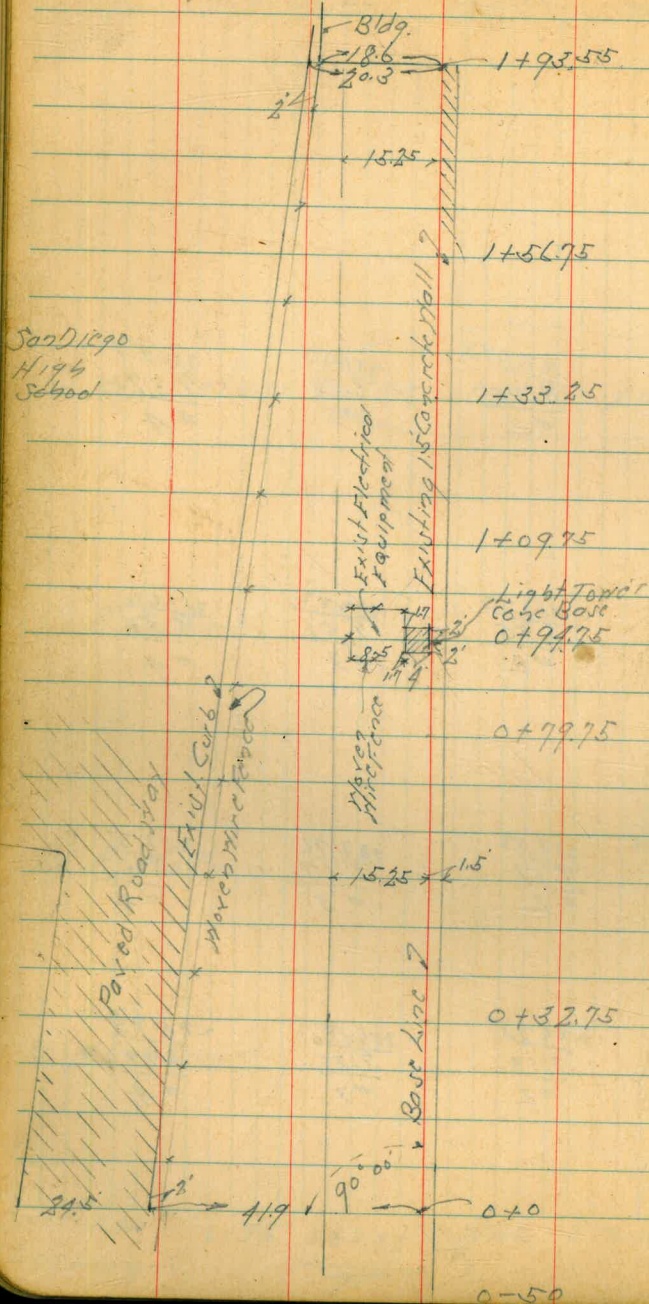 Bldg.
18.6
20.3
1+93.55
2'
15.25
1+56.75
San Diego
High
School
1+33.25
Exist Electrical
Equipment
Existing 1.5 Concrete Wall
1+09.75
Light Tower
Conc Base
17
2'
0+94.75
8.25
2'
17 4
Woven
Wire Fence
0+79.75
Exist. Curb
Woven Wire Fence
Paved Roadway
15.25
1.5
Base Line
0+32.75
90° 00'
24.5
2'
41.9
0+0
0-50